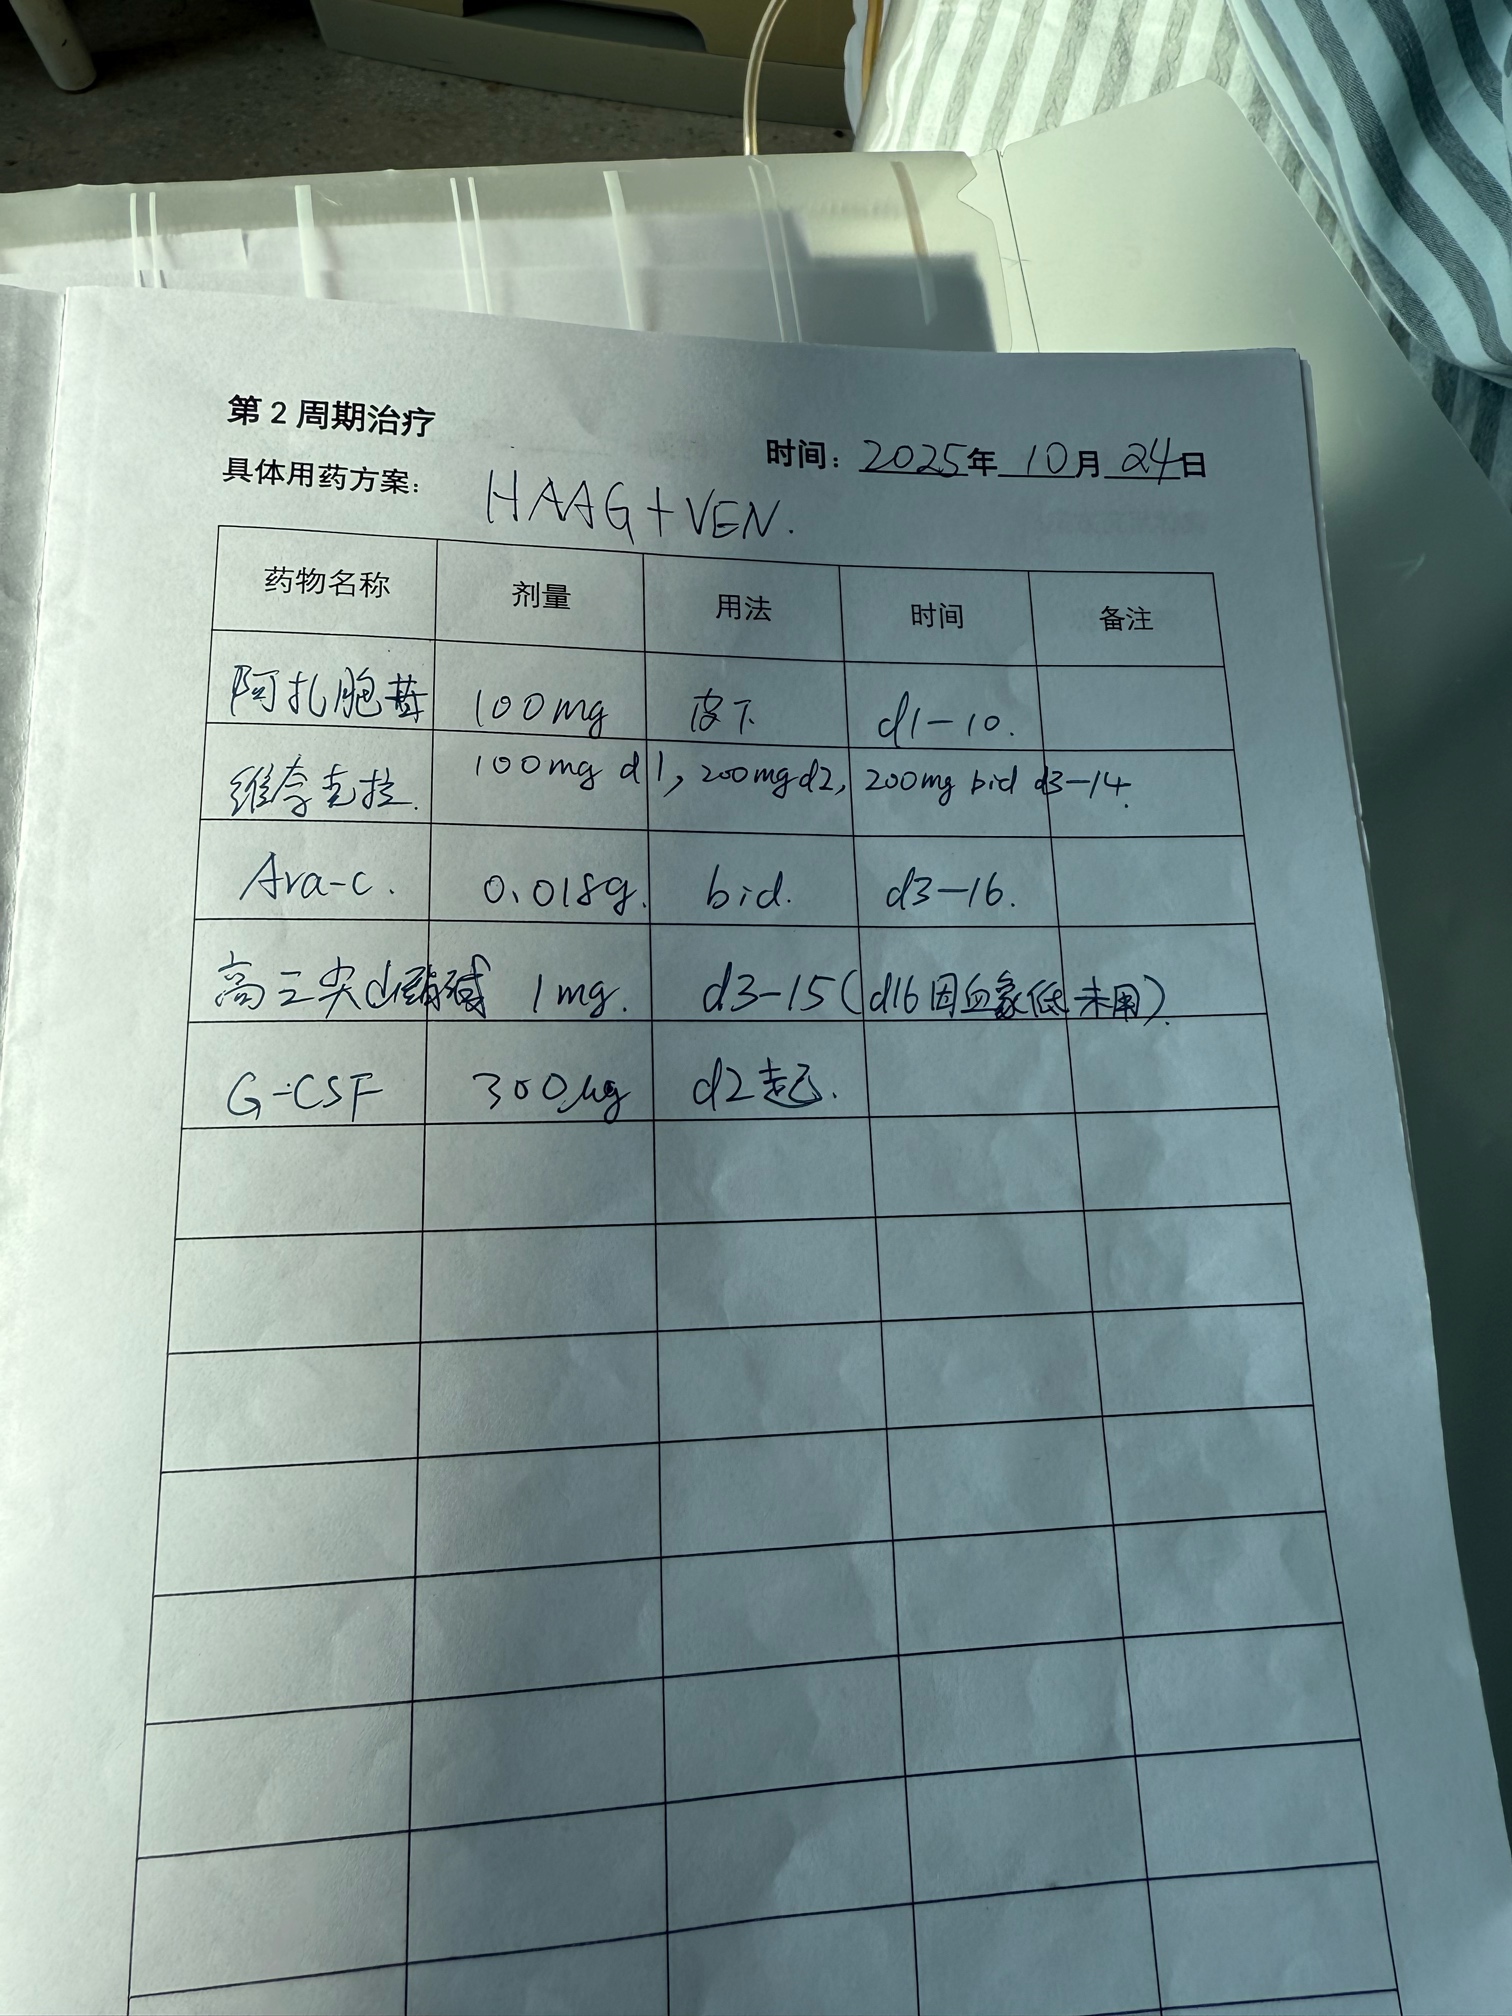 第 2 周期治疗
时间：2025年 10月 24日
具体用药方案： HAAG+VEN.
药物名称 剂量 用法 时间 备注
阿扎胞苷 100mg 皮下 d1-10.
维奈克拉. 100mg d1, 200mg d2, 200mg bid d3-14.
Ara-c. 0.018g. bid. d3-16.
高三尖山酯碱 1mg. d3-15(d16因血象低未用).
G-CSF 300μg d2起.